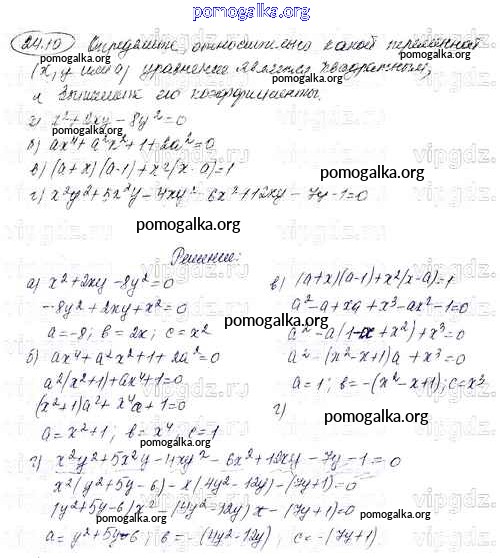 pomogalka.org
24.10 Определите, относительно какой переменной
(x, y или a) уравнение является квадратным,
и запишите его коэффициенты.
а) x² + 2xy - 8y² = 0
б) ax⁴ + a²x² + 1 + 2a² = 0
в) (a+x)(a-1) + x²(x-a) = 1
г) x²y² + 5x²y - 4xy² - 6x² + 12xy - 7y - 1 = 0
pomogalka.org
pomogalka.org
pomogalka.org
Решение:
а) x² + 2xy - 8y² = 0
-8y² + 2xy + x² = 0
a = -8; b = 2x; c = x²
б) ax⁴ + a²x² + 1 + 2a² = 0
a²(x²+1) + ax⁴ + 1 = 0
(x²+1)a² + x⁴a + 1 = 0
a = x² + 1; b = x⁴; c = 1
в) (a+x)(a-1) + x²(x-a) = 1
a² - a + xa + x³ - ax² - 1 = 0
a² - a(1 - x + x²) + x³ = 0
a² - (x² - x + 1)a + x³ = 0
a = 1; b = -(x² - x + 1); c = x³
г)
pomogalka.org
pomogalka.org
pomogalka.org
г) x²y² + 5x²y - 4xy² - 6x² + 12xy - 7y - 1 = 0
x²(y² + 5y - 6) - x(4y² - 12y) - (7y + 1) = 0
(y² + 5y - 6)x² - (4y² - 12y)x - (7y + 1) = 0
a = y² + 5y - 6; b = -(4y² - 12y); c = -(7y + 1)
pomogalka.org
pomogalka.org